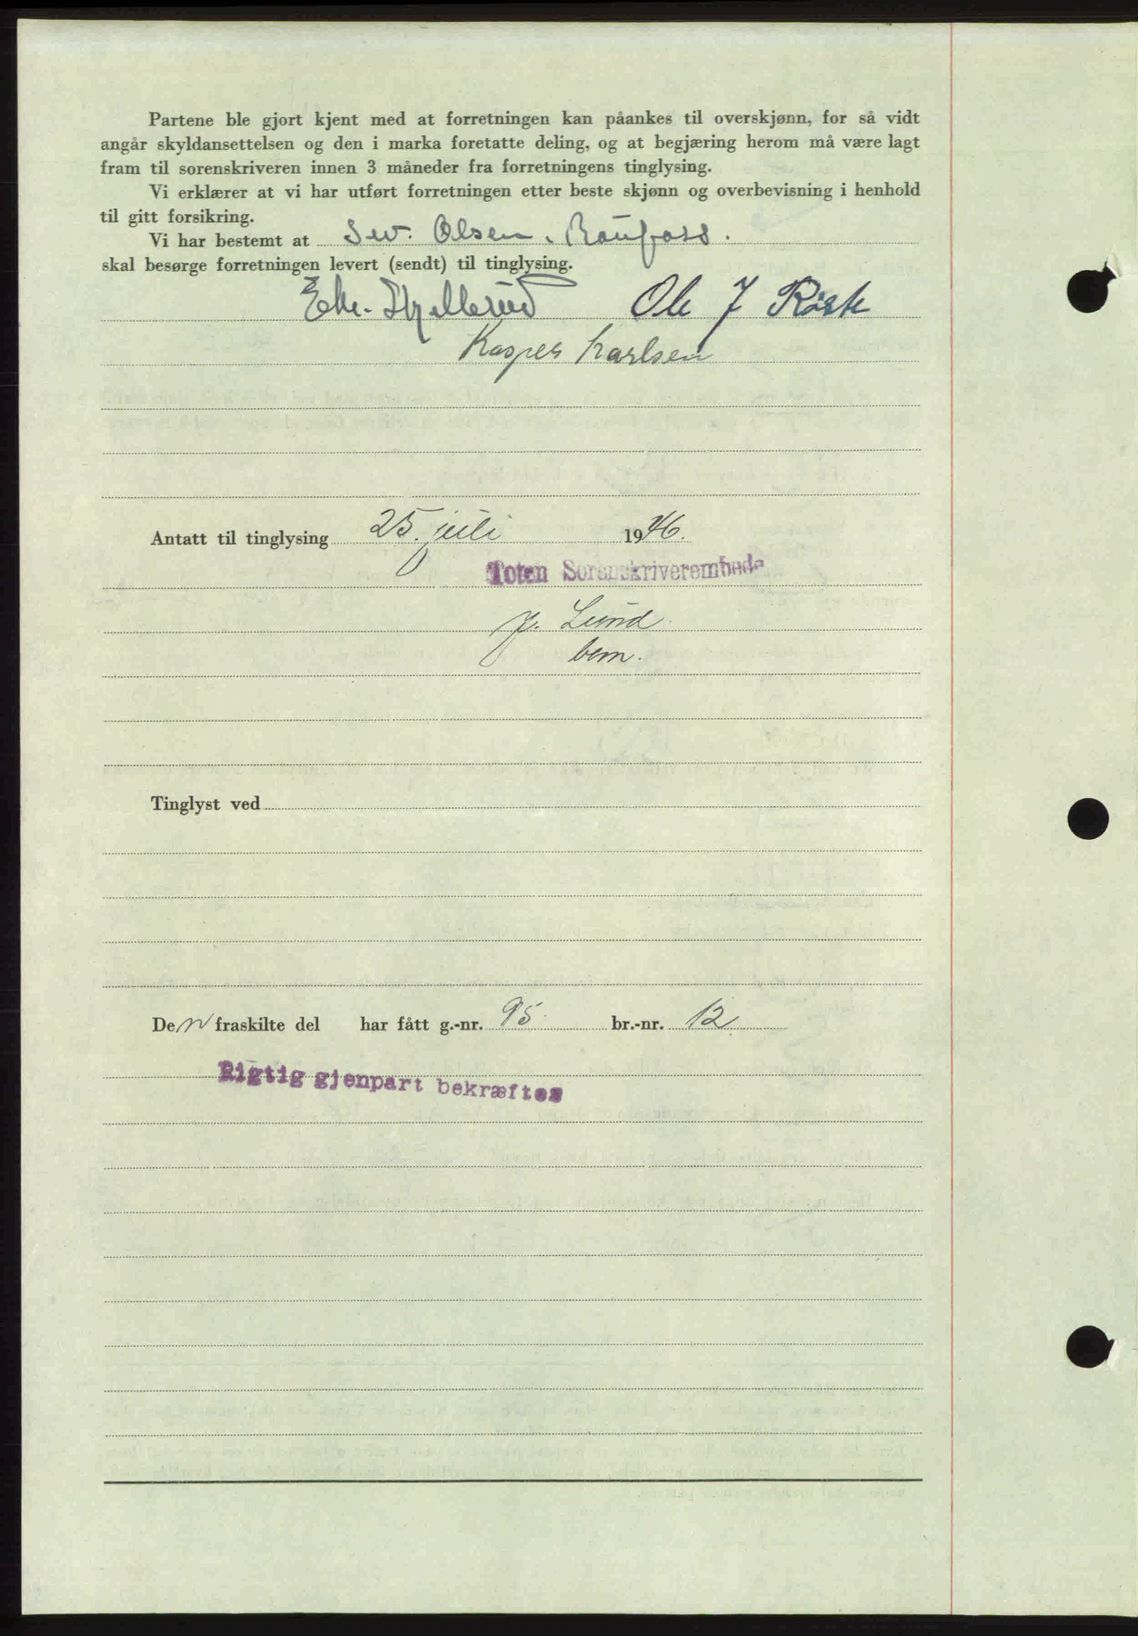 Partene ble gjort kjent med at forretningen kan påankes til overskjønn, for så vidt
angår skyldansettelsen og den i marka foretatte deling, og at begjæring herom må være lagt
fram til sorenskriveren innen 3 måneder fra forretningens tinglysing.
Vi erklærer at vi har utført forretningen etter beste skjønn og overbevisning i henhold
til gitt forsikring.
Vi har bestemt at Sev. Olsen, Raufoss.
skal besørge forretningen levert (sendt) til tinglysing.
Ole J Røste
Kasper Karlsen
Antatt til tinglysing 25. juli 1946.
Toten Sorenskriverembede
J. Lund
bem.
Tinglyst ved
Den fraskilte del har fått g.-nr. 95 br.-nr. 12
Rigtig gjenpart bekræftes